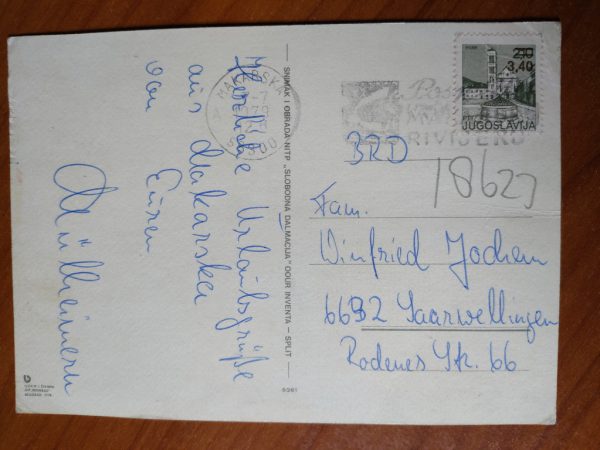 Herzliche Urlaubsgrüße
aus Makarska
von Euren
Müllheimern
SNIMAK I OBRADA NITP „SLOBODNA DALMACIJA" OOUR INVENTA — SPLIT
MAKARSKA
2,10
3,40
JUGOSLAVIJA
RIVIJERU
BRD
18627
Fam.
Winfried Jochem
6632 Saarwellingen
Rodenes Str. 66